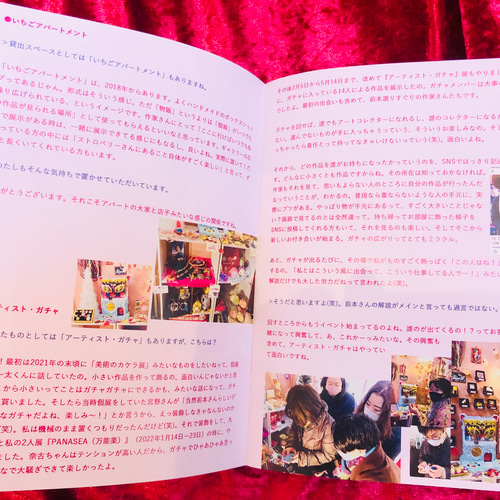 ●いちごアパートメント
>貸出スペースとしては「いちごアパートメント」もありますね。
「いちごアパートメント」は、2018年からあります。よくハンドメイドのボックスショッ
プってあるじゃん。形式はそういう感じ。ただ「物販」というよりは「個展」がいつでも
り広げられている、というイメージです。作家さんにとって「ここに行けばいつでも
作品が見られる場所」として使ってもらえるといいなと思っています。ギャラリーの
で展示がある時は、一緒に展示できてる感じにもなるし、良いよね。実際に置いてくだ
っている方の中には「ストロベリーさんにあること自体がすごく楽しい」と言って、ず
と長くいてくれている方もいます。
たしもそんな気持ちで置かせていただいています。
がとうございます。それこそアパートの大家と店子みたいな感じの関係ですね。
ティスト・ガチャ
たものとしては「アーティスト・ガチャ」もありますが、こちらは？
！最初は2021年の末頃に「美術のカケラ展」みたいなものをしたいねって、假屋
ー太くんに話していたの。小さい作品を作って飾るの、面白いんじゃないかと思
から小さいってことはガチャガチャにできるかも、みたいな話になって、ガチ
買いました。そしたら当時個展をしていた宮野さんが「当然前本さんらしいデ
なガチャだよね、楽しみ〜！」とか言うから、えっ装飾しなきゃなんないのか
(笑)。私は機械のまま置くつもりだったんだけど(笑)。それを装飾して、大
と私の2人展『PANSEA（万能薬）』（2022年1月14日−23日）の時に、や
ました。奈古ちゃんはテンションが高い人だから、ガチャでひゃあひゃあ言っ
なで大騒ぎできて楽しかったよ。
その後2月5日から5月14日まで、改めて『アーティスト・ガチャ』展もやりまし
に、ガチャに入っている14人による作品を展示したの。ガチャメンバーは大事な
でしたよ。最初の出会いも含めて、前本選りすぐりの作家さんたちです。
ガチャを回せば、誰でもアートコレクターになれるし、誰のコレクターになるか
ない。選んでないものが手に入っちゃうっていう、そういうお楽しみなの。それ
っちゃったら責任とって持ってなきゃいけないっていう(笑)。面白いよね。
それから、どの作品を誰がお持ちになったかっていうのを、SNSではっきり記
す。どんなに小さくとも作品ですからね。その所在は知っておかなければ。
作家もそれを見て、思いもよらない人のところに自分の作品が行ったんだ
なっていうことが、わかるの。普段なら重ならないような人の手元に、実
際にブツがある。やっぱり物が手元にあるって、すごく大きいことじゃな
い？画面で見てるのとは全然違って。持ち帰ってお部屋に飾った様子を
SNSに投稿してくれる方もいて、それを見るのも楽しい。そしてそこから
新しいお付き合いが始まる。ガチャの広がりってとてもミラクル。
あと、ガチャが出るたびに、その場で私がものすごく熱っぽく「この人はね！」
するの。「私とはこういう風に出会って、こういう仕事してる人で…！」みたい
解説だけでも大した労力だねって言われたよ(笑)。
>そうだと思いますよ(笑)。前本さんの解説がメインと言っても過言ではない。
回すところからもうイベント始まってるのよね。誰のが出てくるの！？ってお
暖になって興奮して、あ、これかーっみたいな。その興奮も
含めて、アーティスト・ガチャはやってい
て面白いです。